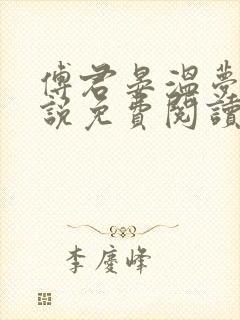 傅君晏溫夢
說免費閱讀
李慶峰